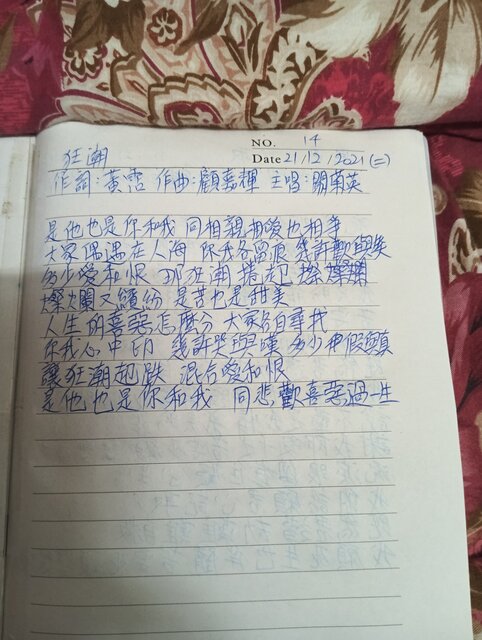 NO. 14
狂潮 Date 21/12/2021(二)
作詞:黃霑 作曲:顧嘉輝 主唱:關菊英
是他也是你和我 同相親相愛也相爭
大家偶遇在人海 你我各留痕 幾許歡與笑
多少愛和恨 那狂潮捲起 燦爛
燦爛又繽紛 是苦也是甜美
人生的喜惡怎麼分 大家各自尋找
你我心中印 幾許哭與嘆 多少假
讓狂潮起跌 混合愛和恨
是他也是你和我 同悲歡喜惡過一生